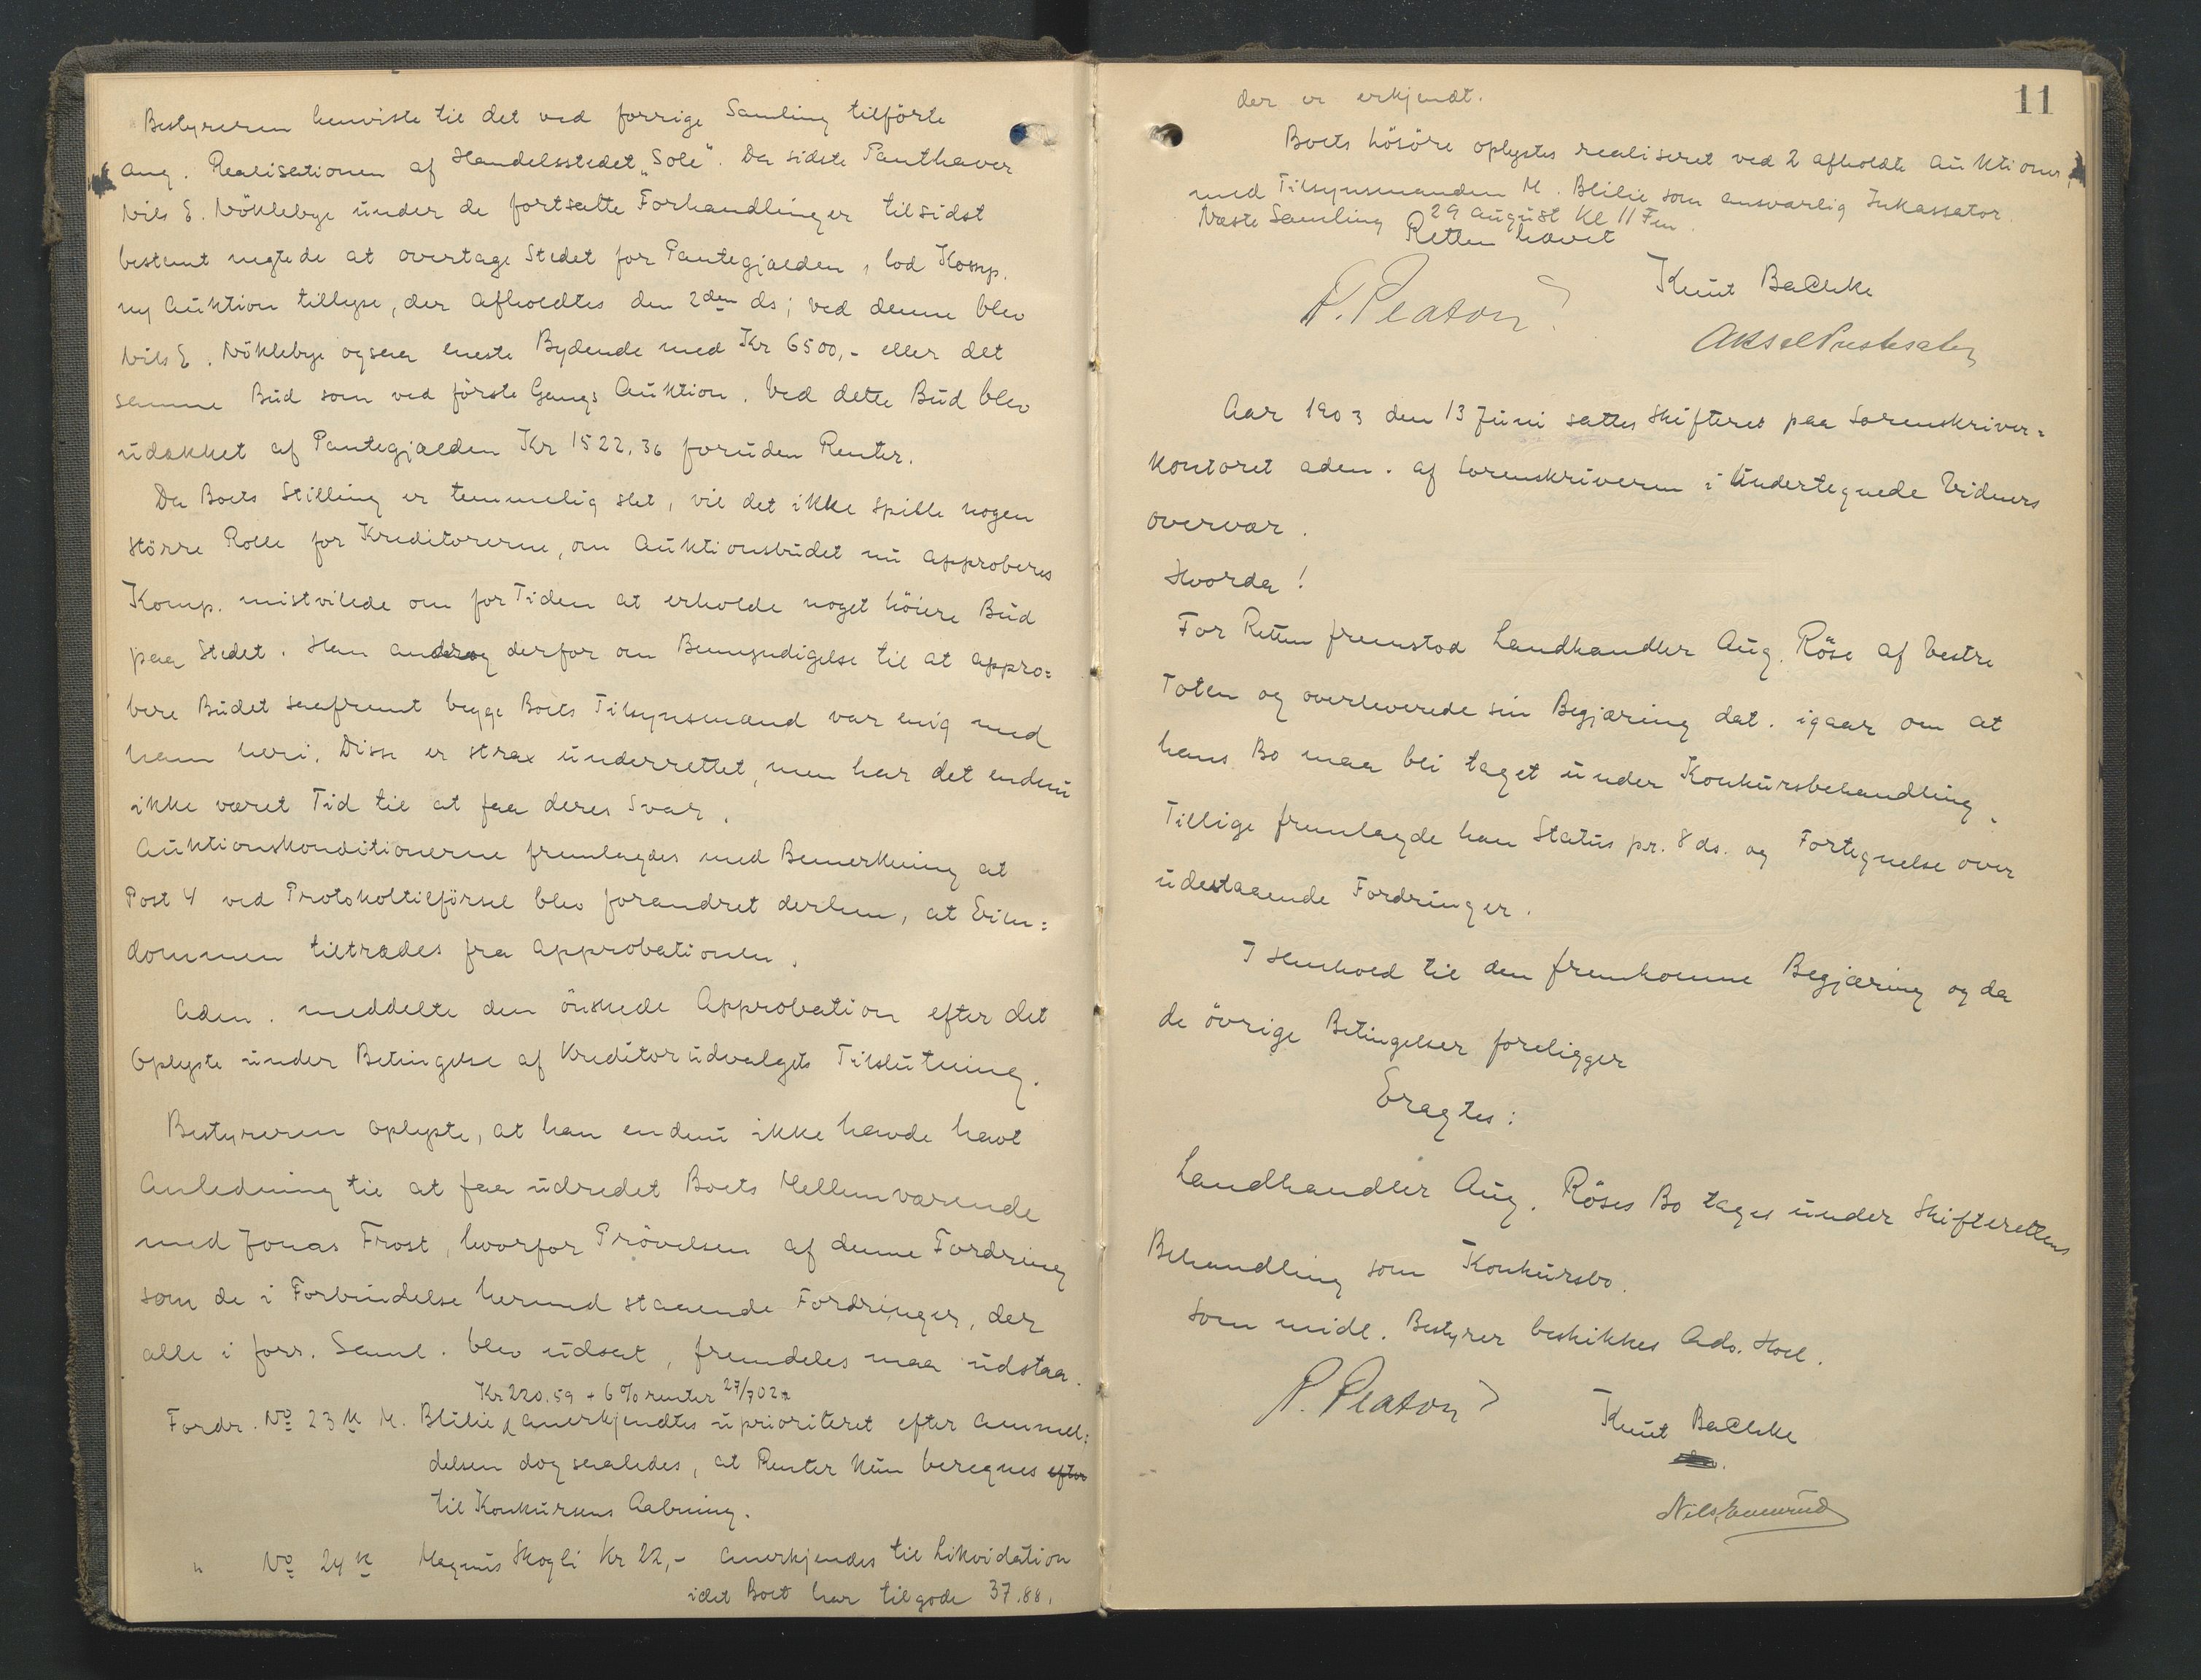 Bestyreren henviste til det ved forrige Samling tilförte
ang. Realisationen af Handelsstedet „Sole“. Da sidste Panthaver
Nils E. Nöklebye under de fortsatte Forhandlinger tilsidst
bestemt negtede at overtage Stedet for Pantegjælden, lod Komp.
ny Auktion tillyse, der afholdtes den 2den ds; ved denne blev
Nils E. Nöklebye ogsaa eneste Bydende med Kr 6500,- eller det
samme Bud som ved förste Gangs Auktion. Ved dette Bud blev
udækket af Pantegjælden Kr 1522,36 foruden Renter.
Da Boets Stilling er temmelig slet, vil det ikke spille nogen
större Rolle for Kreditorerne, om Auktionsbudet nu approberes
Komp. mistvilede om for Tiden at erholde noget höiere Bud
paa Stedet. Han androg derfor om Bemyndigelse til at appro=
bere Budet saafremt begge Boets Tilsynsmænd var enig med
ham heri. Disse er strax underrettet, men har det endnu
ikke været Tid til at faa deres Svar.
Auktionskonditionerne fremlagdes med Bemerkning at
Post 4 ved Protokoltilförsel blev forandret derhen, at Eien=
dommen tiltrædes fra Approbationen.
Adm. meddelte den önskede Approbation efter det
Oplyste under Betingelse af Kreditorudvalgets Tilslutning.
Bestyreren oplyste, at han endnu ikke havde havt
Anledning til at faa udredet Boets Mellemværende
med Jonas Frost, hvorfor Prövelsen af denne Fordring
som de i Forbindelse hermed staaende Fordringer, der
alle i forr. Saml. blev udsat, fremdeles maa udstaa.
Kr 220.59 + 6% renter 27/7 02
Fordr. No 23 K M. Blilie anerkjendtes uprioriteret efter Anmel=
delsen dog saaledes, at Renter kun beregnes efter
til Konkursens Aabning.
" No 24 K Magnus Skogli Kr 22,- anerkjendes til Likvidation
idet Boet har tilgode 37.88,
11
der er erkjendt.
Boets lösöre oplystes realiseret ved 2 afholdte Auktioner,
med Tilsynsmanden M. Blilie som ansvarlig Inkassator.
Næste Samling 29 August Kl 11 Fm.
Retten hævet
P. Peaton
Knut Bachke
Aksel Prestesæter
Aar 1903 den 13 Juni sattes Skifteret paa Sorenskriver=
kontoret adm. af Sorenskriveren i Undertegnede Vidners
overvær.
Hvorda!
For Retten fremstod Landhandler Aug. Röse af Vestre
Toten og overleverede sin Begjæring dat. igaar om at
hans Bo maa bli taget under Konkursbehandling.
Tillige fremlagde han Status pr. 8 ds. og Fortegnelse over
udestaaende Fordringer.
I Henhold til den fremkomne Begjæring og da
de övrige Betingelser foreligger
Eragtes:
Landhandler Aug. Röses Bo tages under Skifterettens
Behandling som Konkursbo.
Som midl. Bestyrer beskikkes Adv. Hoel.
P. Peaton
Knut Bachke
Nils